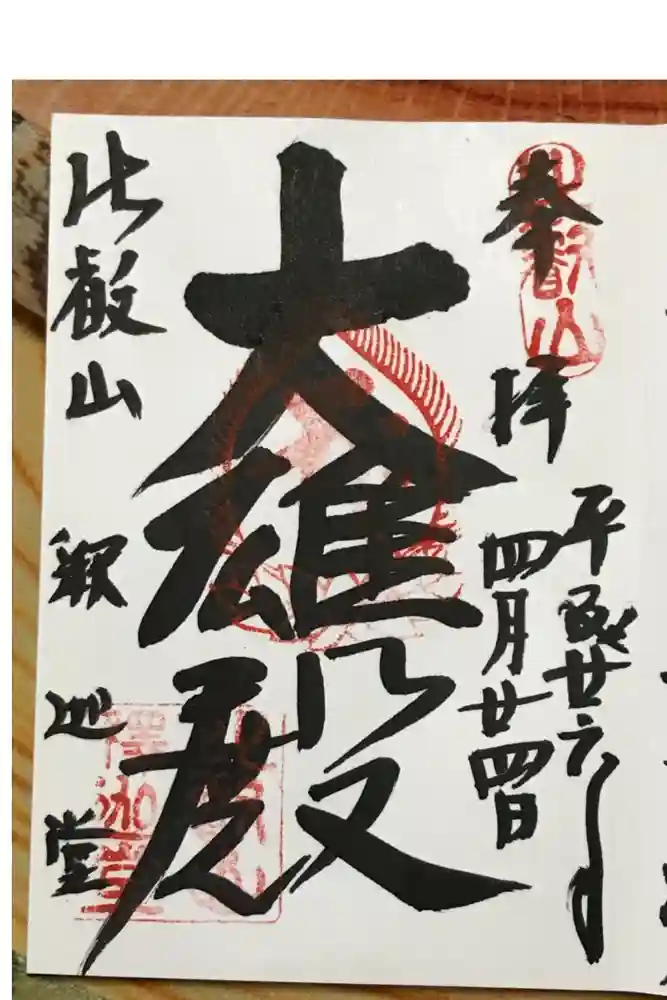 奉拝
平成廿六年
四月廿四日
大雄殿
比叡山
釈迦堂
比叡山